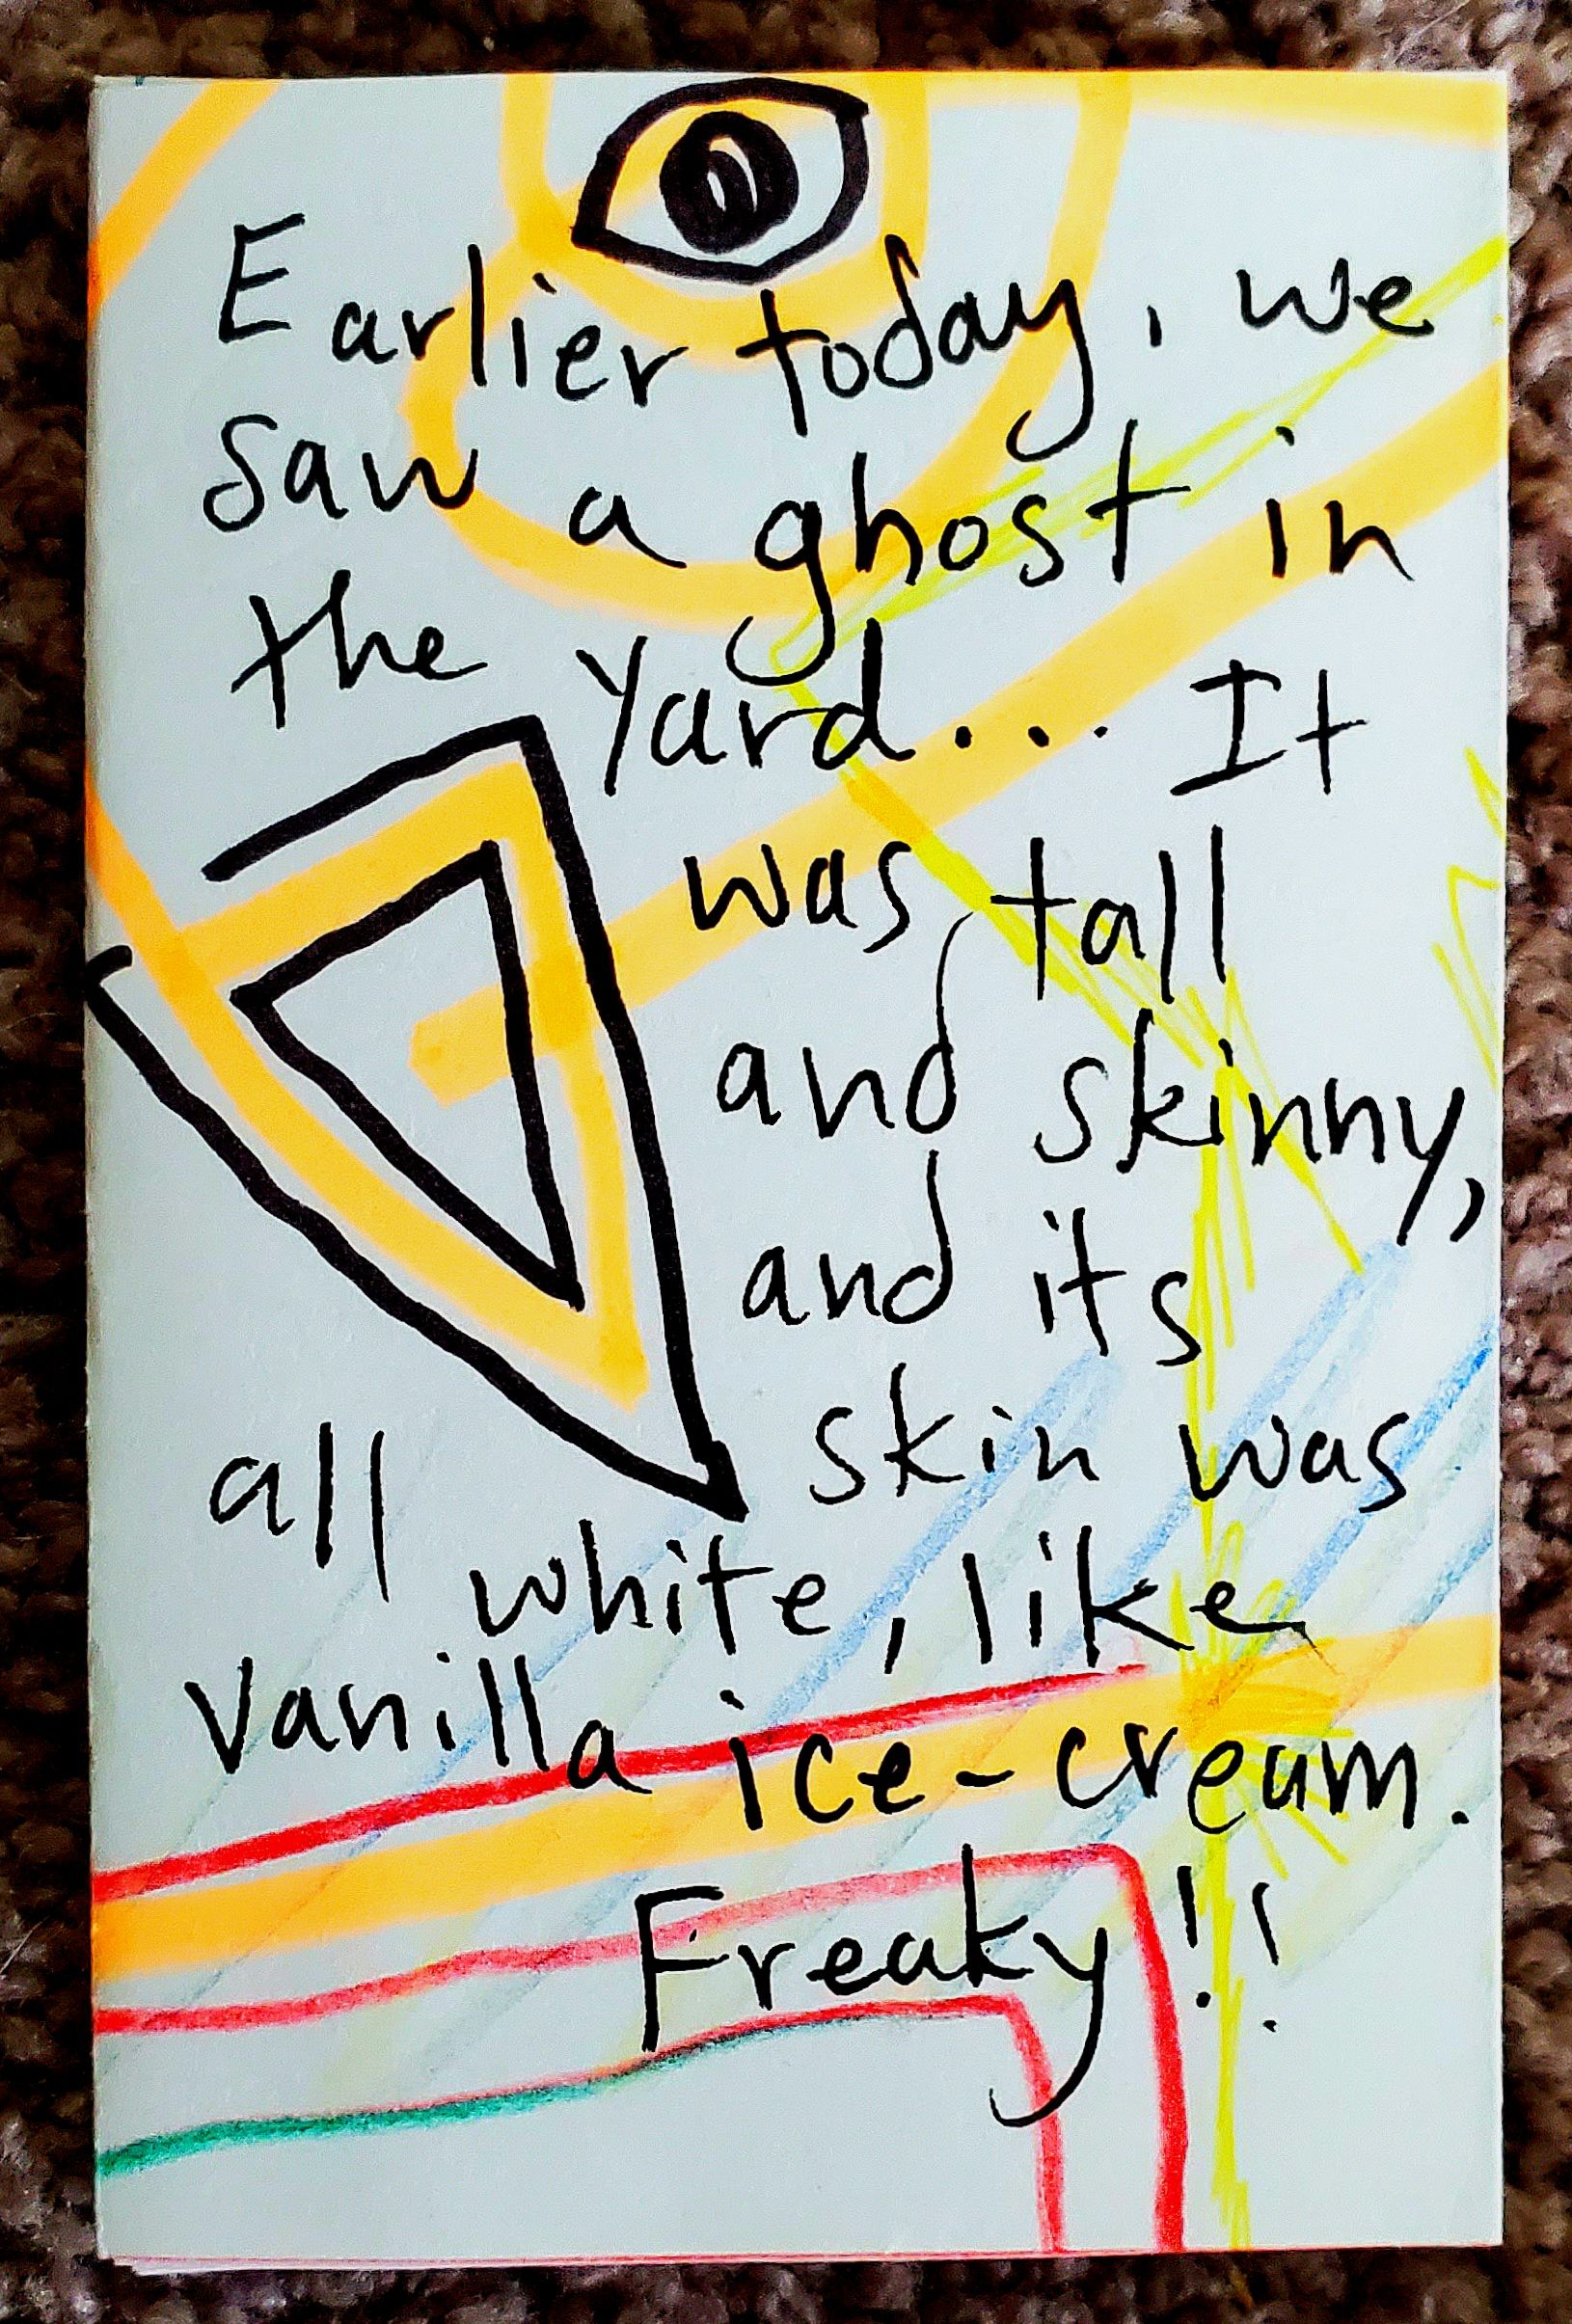 Earlier today, we
saw a ghost in
the yard... It
was tall
and skinny,
and its
skin was
all white, like
Vanilla ice-cream.
Freaky!!